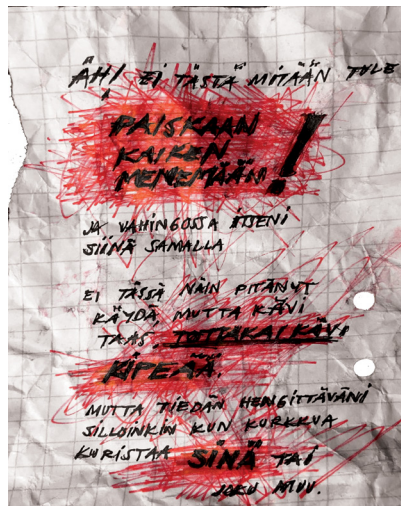 ÄH! EI TÄSTÄ MITÄÄN TULE
PAISKAAN
KAIKEN
MENEMÄÄN!
JA VAHINGOSSA ITSENI
SIINÄ SAMALLA
EI TÄSSÄ NÄIN PITÄNYT
KÄYDÄ, MUTTA KÄVI
TAAS. TOTTAKAI KÄVI
KIPEÄÄ.
MUTTA TIEDÄN HENGITTÄVÄNI
SILLOINKIN KUN KURKKUA
KURISTAA SINÄ TAI
JOKU MUU.